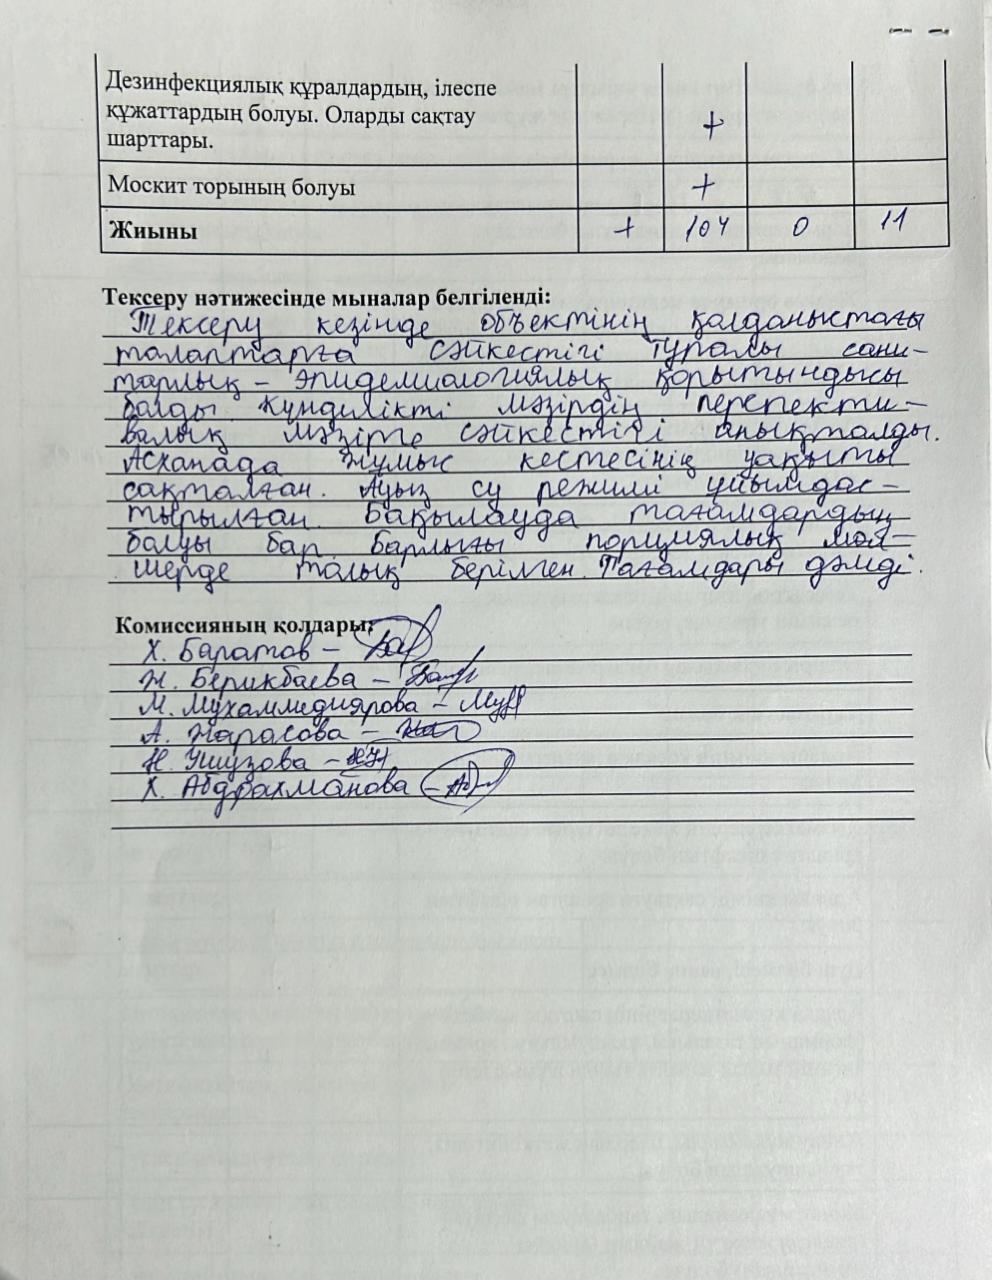 Дезинфекциялық құралдардың, ілеспе
құжаттардың болуы. Оларды сақтау
шарттары. +
Москит торының болуы +
Жиыны + 104 0 11
Тексеру нәтижесінде мыналар белгіленді:
Тексеру кезінде объектінің қолданыстағы
талаптарға сәйкестігі туралы сани-
тарлық - эпидемиологиялық қорытындысы
болды. Күнделікті мәзірдің перспекти-
валық мәзірге сәйкестігі анықталды.
Асханада жұмыс кестесінің уақыты
сақталған. Ауыз су режимі ұйымдас-
тырылған. Бақылауда тағамдардың
болуы бар. Барлығы порциялық мөл-
шерде толық берілген. Тағамдары дәмді.
Комиссияның қолдары:
Х. Баратов -
Н. Берикбаева -
М. Мухаммедиярова -
А. Нарасова -
Н. Ушузова -
Х. Абдрахманова -